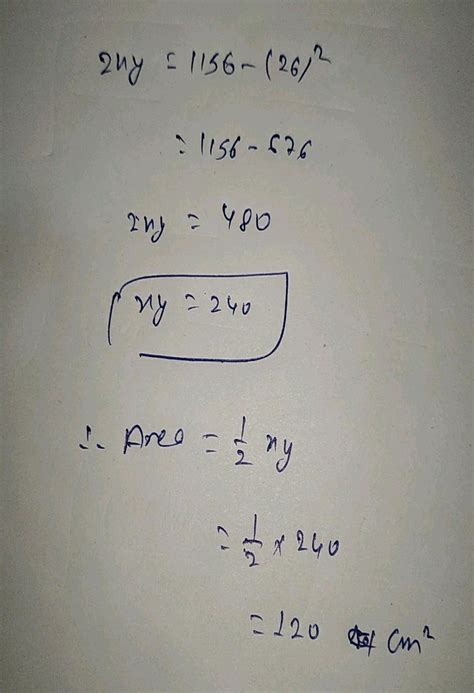 2xy = 1156 - (26)²
= 1156 - 676
2xy = 480
xy = 240
∴ Area = 1/2 xy
= 1/2 × 240
= 120 cm²